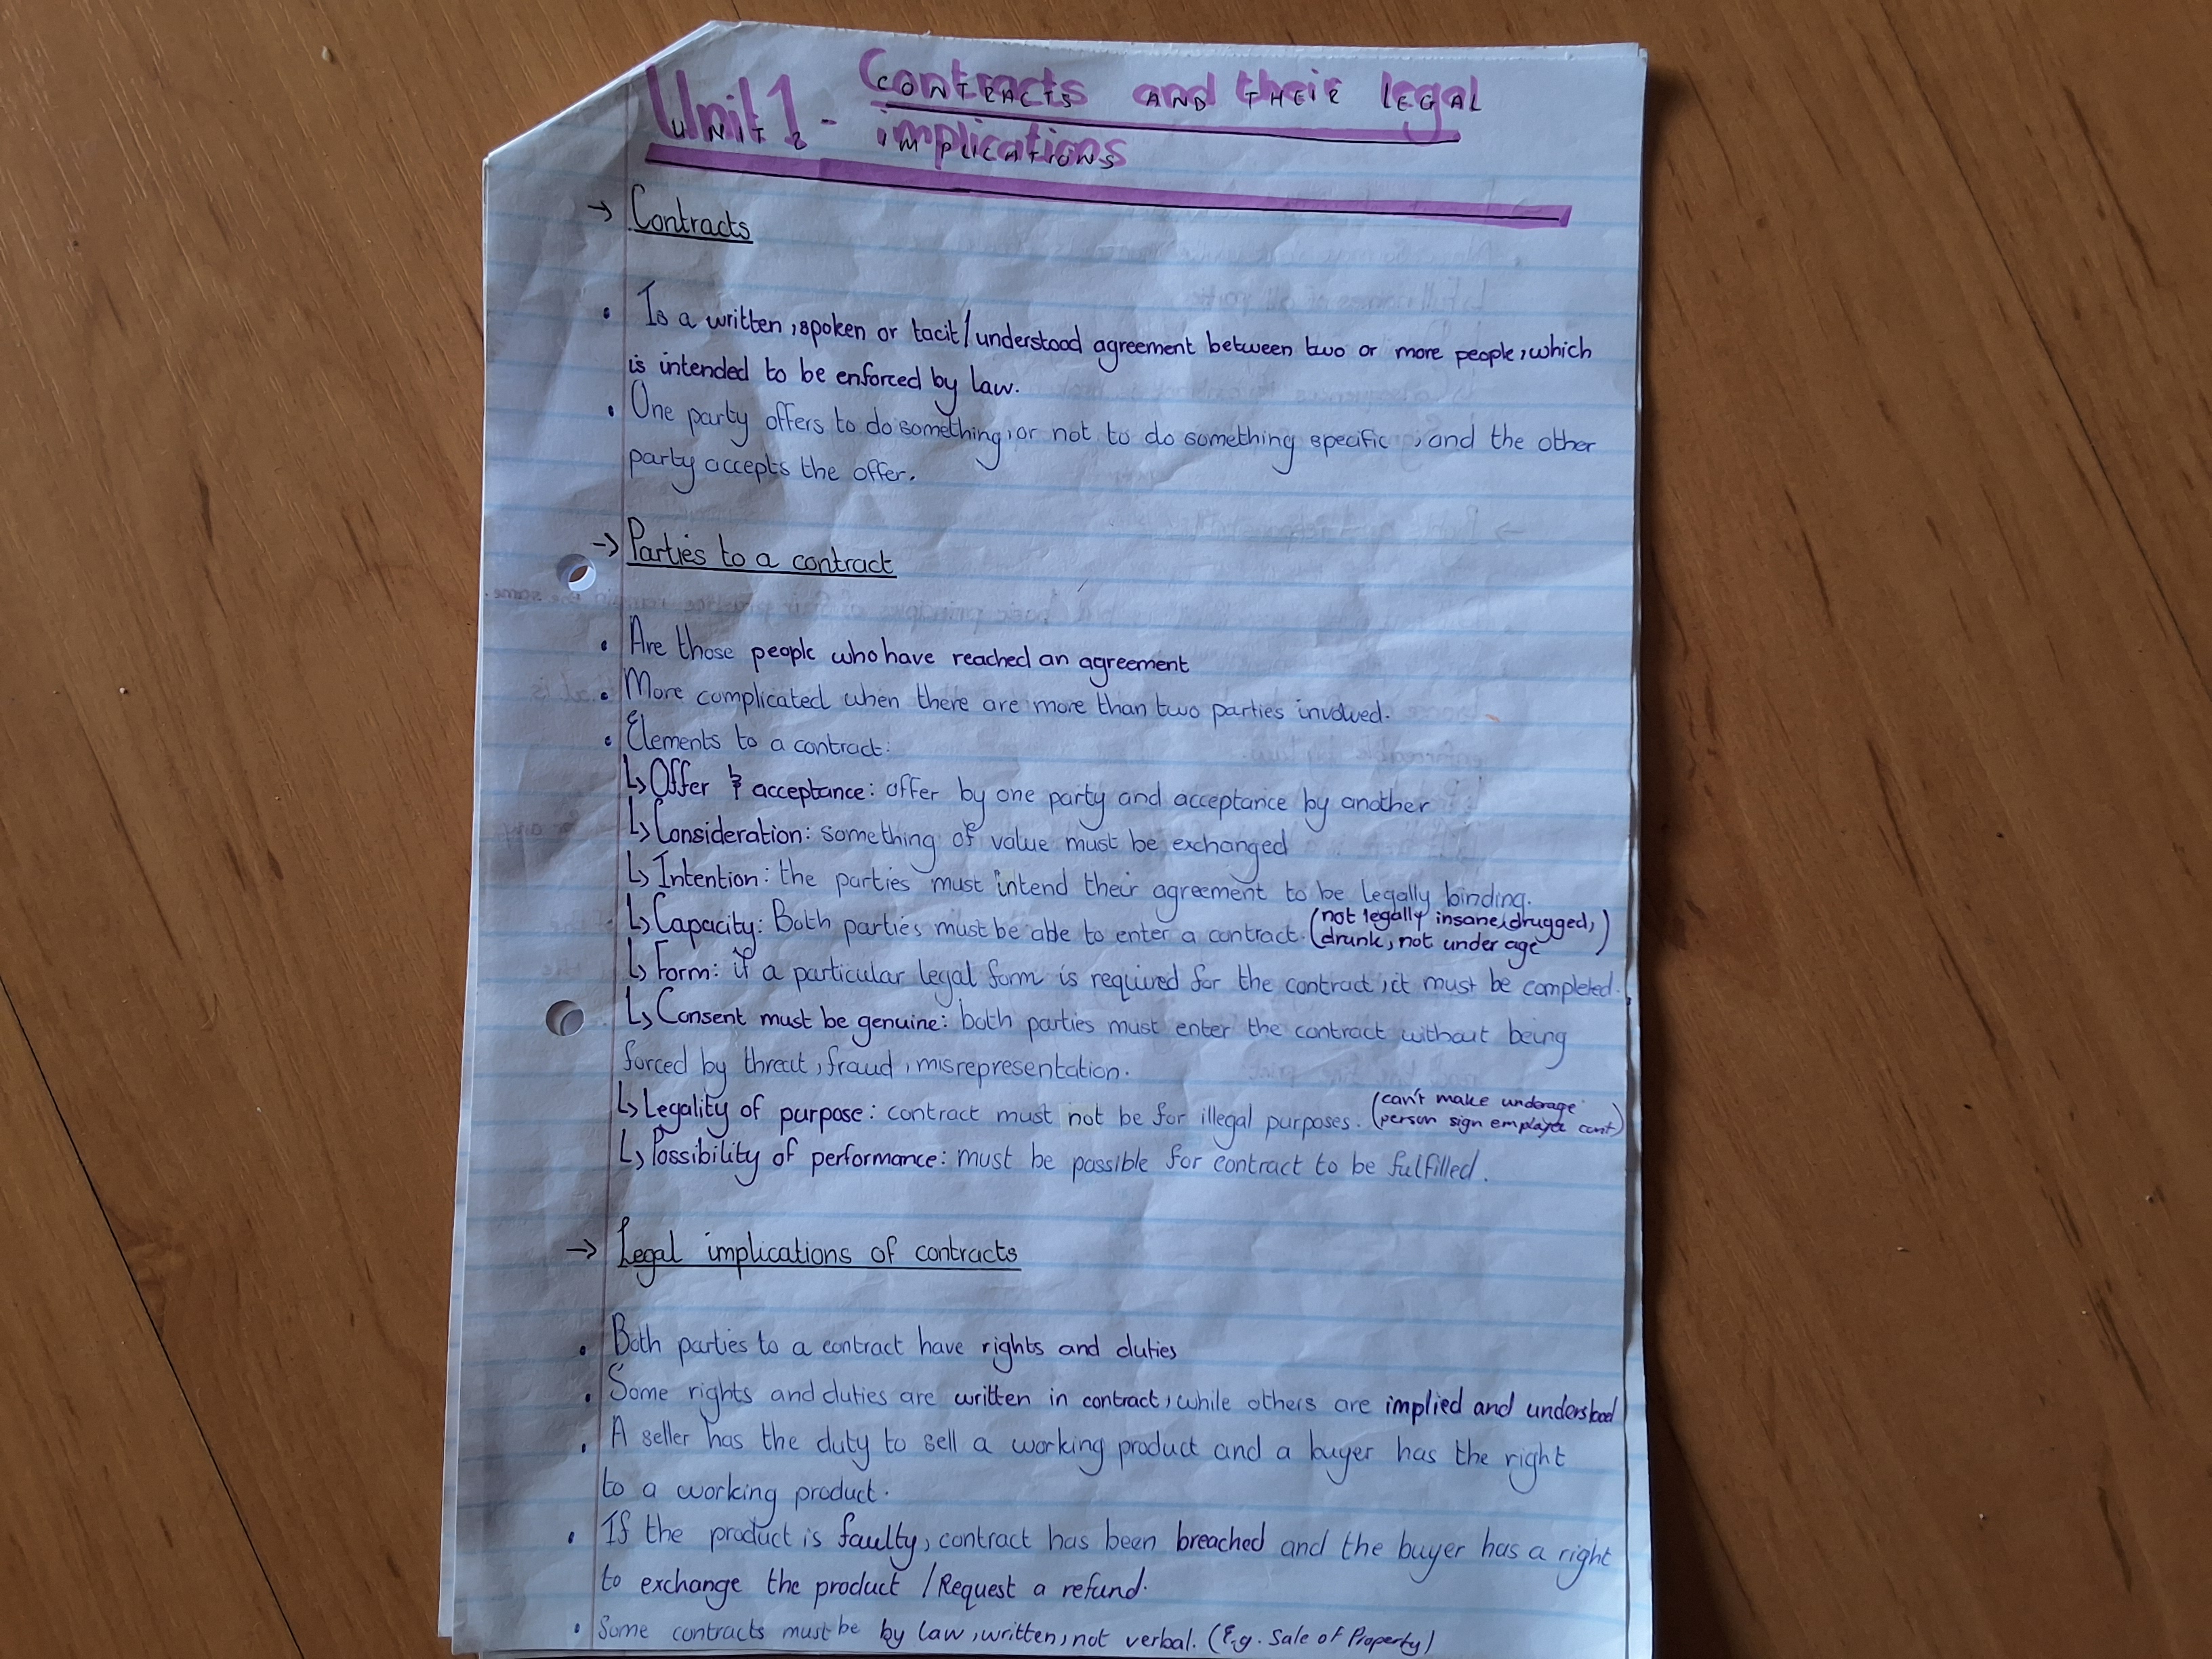 Unit 1 - Contracts and their legal
implications
→ Contracts
• Is a written, spoken or tacit/understood agreement between two or more people, which
is intended to be enforced by law.
• One party offers to do something, or not to do something specific, and the other
party accepts the offer.
→ Parties to a contract
• Are those people who have reached an agreement
• More complicated when there are more than two parties involved.
• Elements to a contract:
↳ Offer & acceptance: offer by one party and acceptance by another
↳ Consideration: something of value must be exchanged
↳ Intention: the parties must intend their agreement to be legally binding.
↳ Capacity: Both parties must be able to enter a contract. (not legally insane, drugged,
drunk, not under age)
↳ Form: if a particular legal form is required for the contract, it must be completed.
↳ Consent must be genuine: both parties must enter the contract without being
forced by threat, fraud, misrepresentation.
↳ Legality of purpose: contract must not be for illegal purposes. (can't make underage
person sign employee cont)
↳ Possibility of performance: must be possible for contract to be fulfilled.
→ Legal implications of contracts
• Both parties to a contract have rights and duties
• Some rights and duties are written in contract, while others are implied and understood
• A seller has the duty to sell a working product and a buyer has the right
to a working product.
• If the product is faulty, contract has been breached and the buyer has a right
to exchange the product / Request a refund.
• Some contracts must be by law, written, not verbal. (E.g. Sale of Property)